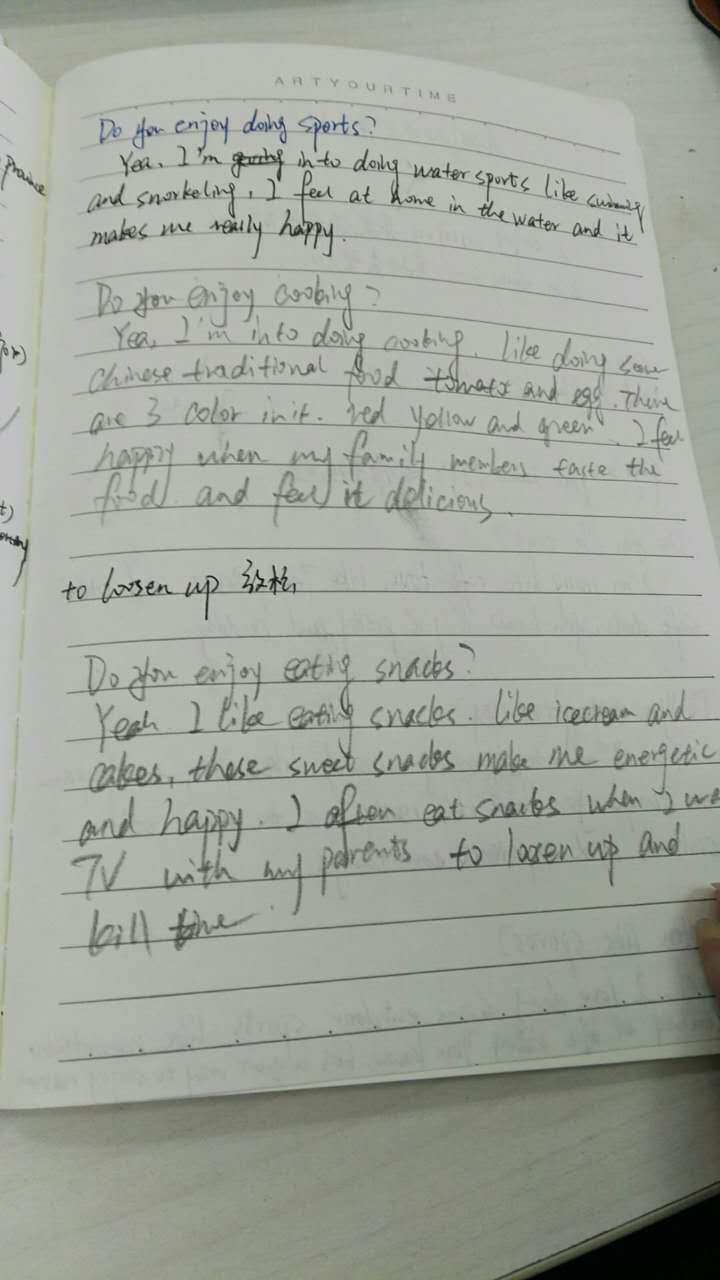 ARTYOURTIME
Do you enjoy doing sports?
Yea, I'm going into doing water sports like swimming
and snorkeling, I feel at home in the water and it
makes me really happy.
Do you enjoy cooking?
Yea, I'm into doing cooking. Like doing some
Chinese traditional food tomato and egg. There
are 3 color in it. red yellow and green. I feel
happy when my family members taste the
food and feel it delicious.
to loosen up 放松
Do you enjoy eating snacks?
Yeah I like eating snacks. Like icecream and
cakes, these sweet snacks make me energetic
and happy. I often eat snacks when I
TV with my parents to loosen up and
kill time.